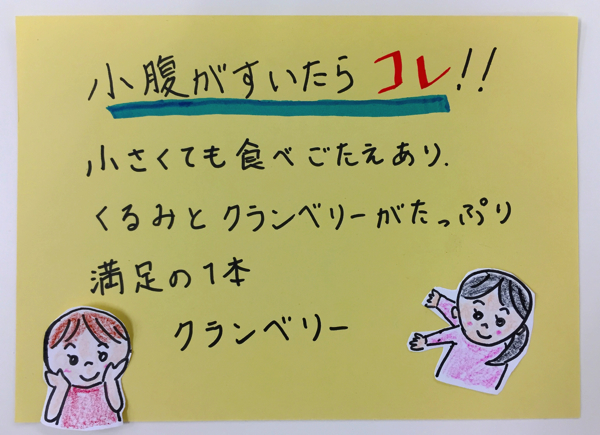 小腹がすいたらコレ!!
小さくても食べごたえあり.
くるみとクランベリーがたっぷり
満足の1本
クランベリー